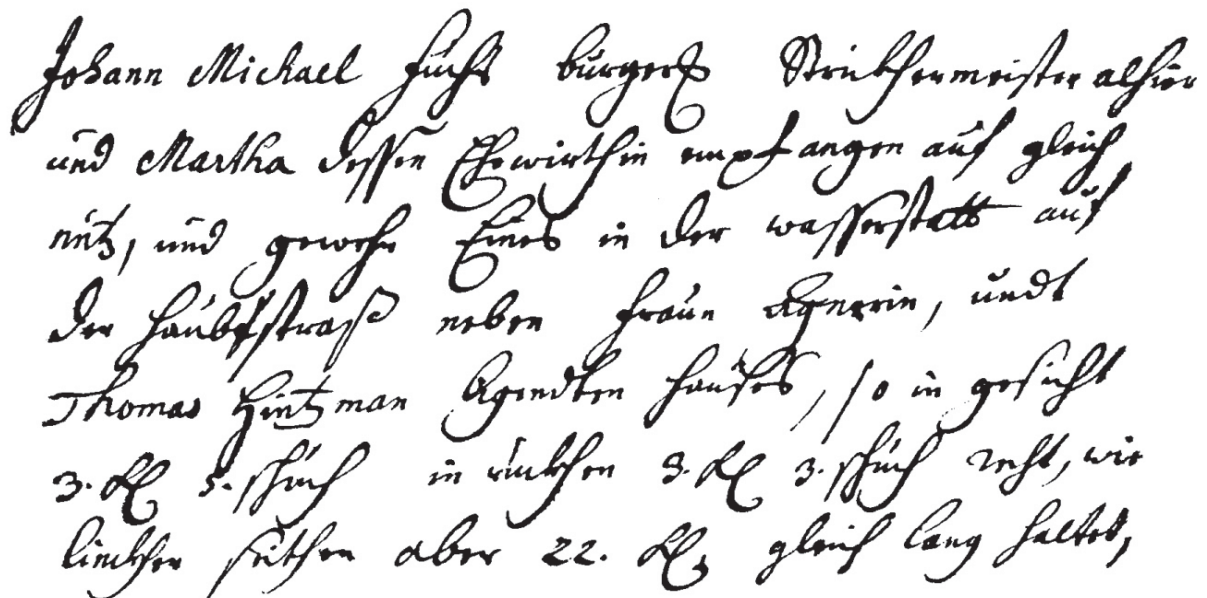 Johann Michael Fuchs burgerl Strickhermeister alhier
und Martha dessen Ehewirthin empfangen auf gleich
nutz, und gewehr Eines in der wasserstatt auf
der haubtstraß neben frauen Agnesin, undt
Thomas Hintzman Agendten haußes, so in gesicht
3. Kl 5. schuch in rückhen 3. Kl 3. schuch recht, wie
linckher seithen aber 22. Kl, gleich lang haltet,